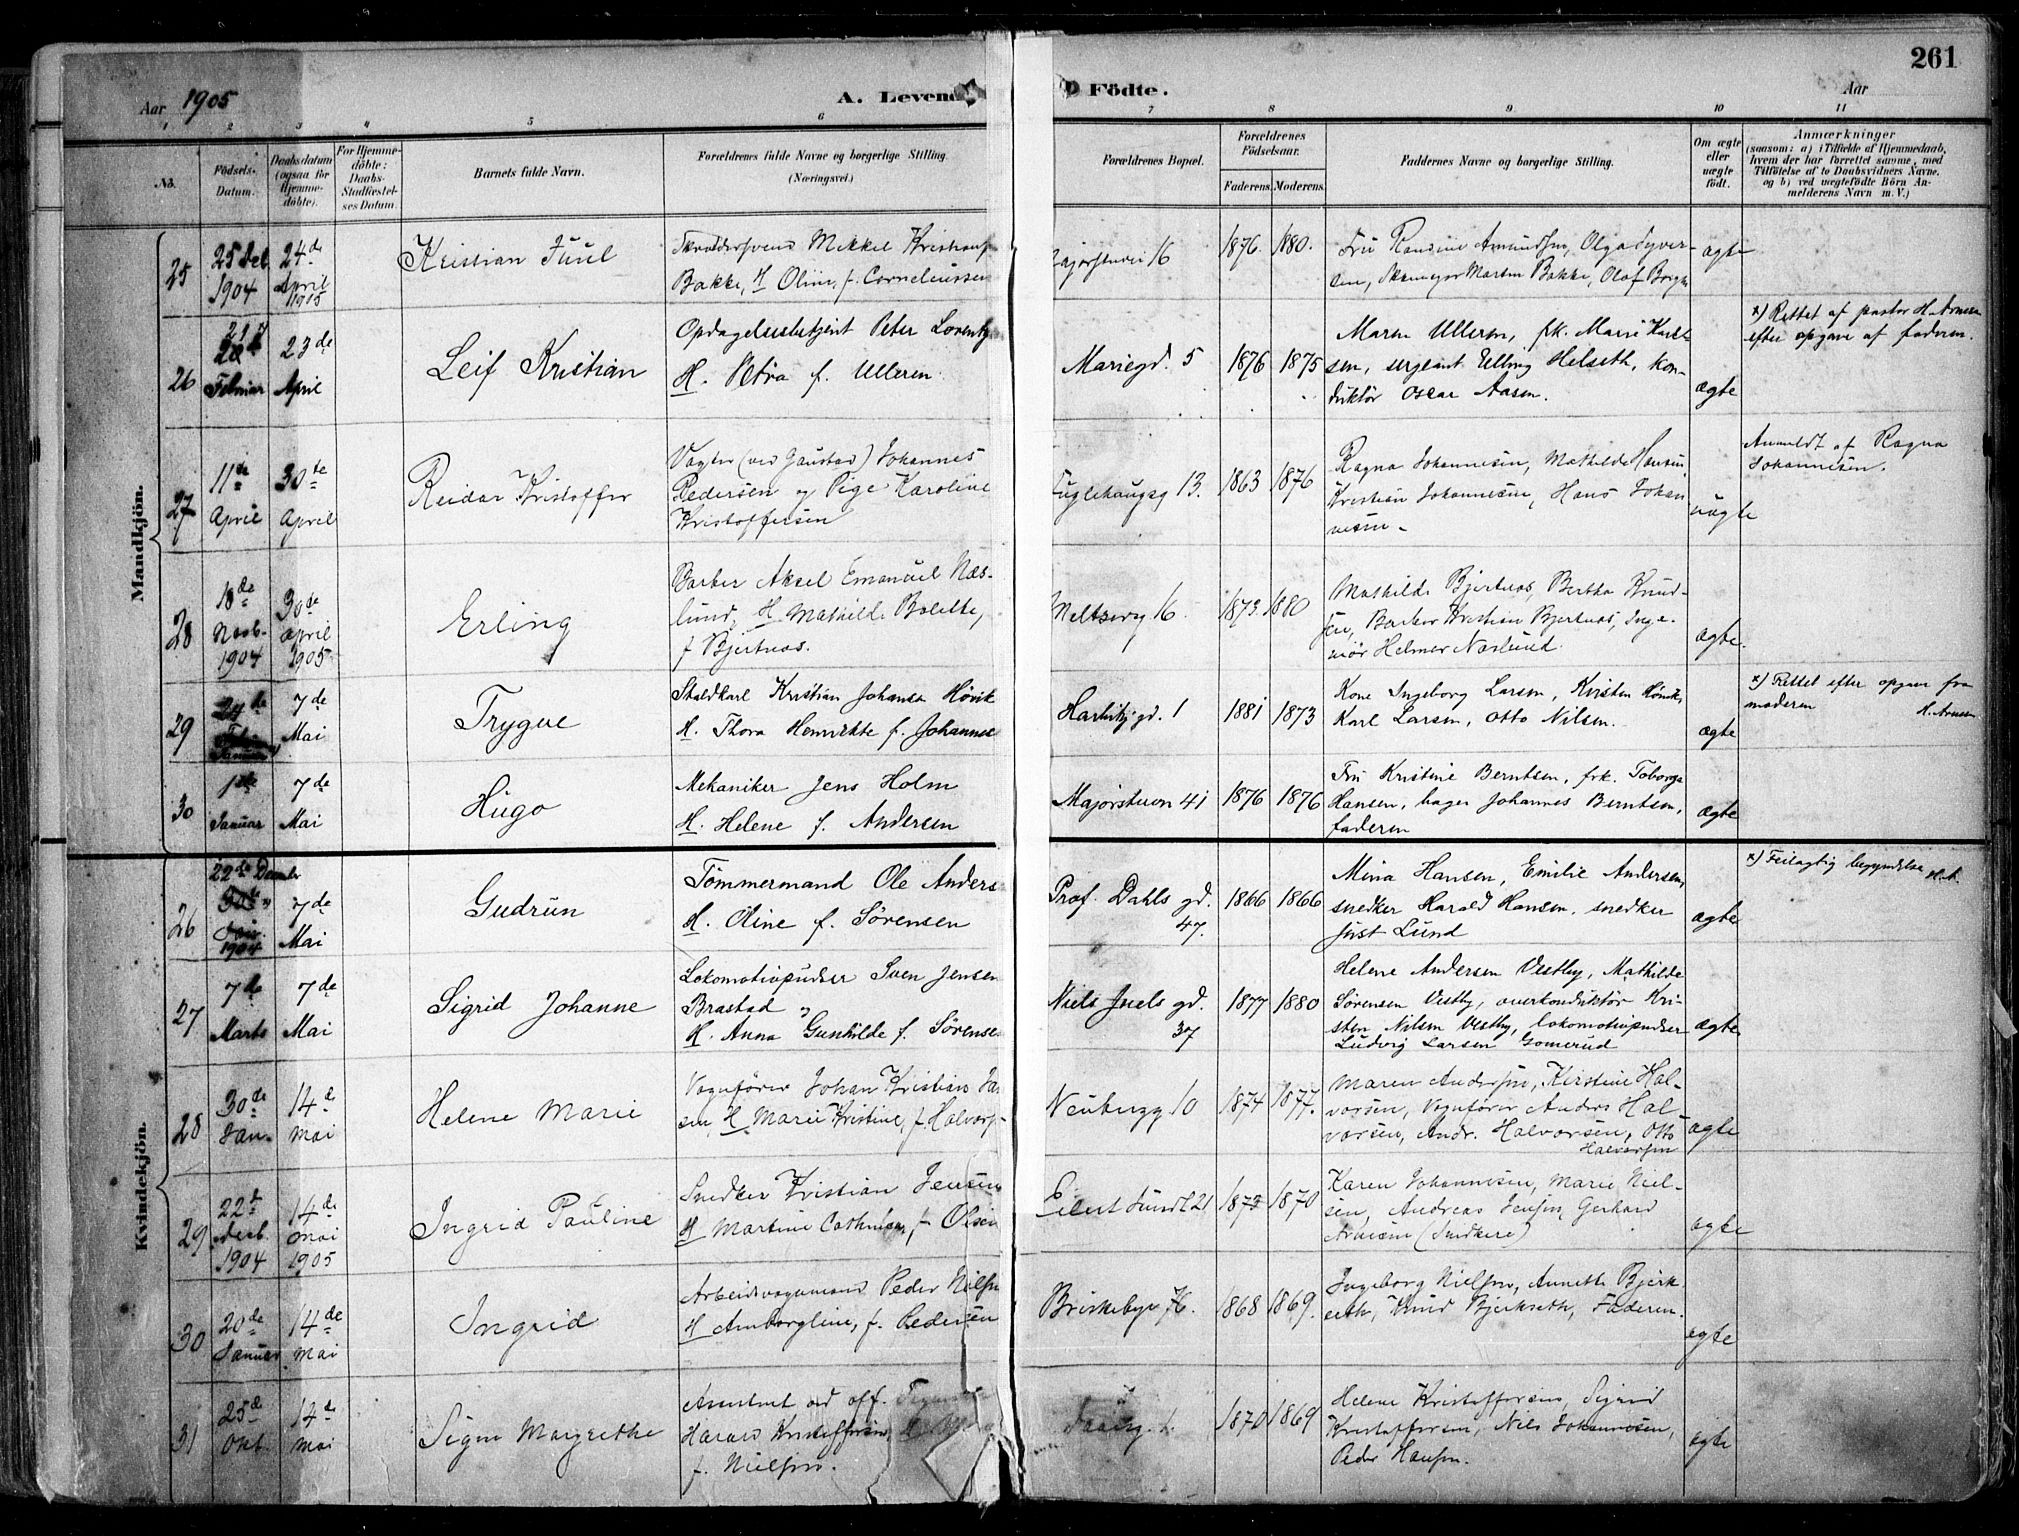 261
Aar 1905
A. Levend
Födte.
Aar
1 2 3 4 5 6 7 8 9 10 11
No.
Födsels-
Datum.
Daabsdatum
(ogsaa for
Hjemme-
döbte).
For Hjemme-
döbte:
Daabs-
Stadfæstel-
ses Datum.
Barnets fulde Navn.
Forældrenes fulde Navne og borgerlige Stilling.
(Næringsvei.)
Forældrenes Bopæl.
Forældrenes
Födselsaar.
Faderens. Moderens.
Faddernes Navne og borgerlige Stilling.
Om ægte
eller
uægte
födt.
Anmærkninger
(saasom: a) i Tilfælde af Hjemmedaab,
hvem der har forrettet samme, med
Tilföielse af to Daabsvidners Navne,
og b) ved uægtefödte Börn An-
melderens Navn m. V.)
Mandkjön.
25
25 Del
1904
24de
April
1905
Kristian Juul
Skræddersvend Mikkel
Bakke, H Oline, f. Corneliussen
16
1876. 1880.
Fru Amundsen, Olga Syver-
sen, Martin Bakke, Olaf
ægte
26
Februar
23de
April
Leif Kristian
Opdagelsesbetjent Peter Lorentz
H. Petra f. Ulleren.
Mariegd. 5
1876 1875
Maren Ulleren, frk. Marie Karl-
sen, sergeant Elling Helseth, kon-
duktör Oscar Aasen.
ægte
x) Rettet af pastor H. Arnesen
efter opgave af faderen.
27
11te
April
30te
April
Reidar Kristoffer
Vogter (ved Gaustad) Johannes
Pedersen og Pige Karoline
Kristoffersen
Fuglehaugsg 13.
1863 1876
Ragna Johannesen, Mathilde Hansen,
Kristian Johannesen, Hans Johan
nesen.
uægte
Anmeldt af Ragna
Johannesen.
28
18de
Novb.
1904
30te
April
1905
Erling
Barber Aksel Emanuel Næs-
lund, H Mathilde Bolette,
f Bjertnæs.
Meltzersg 16
1873. 1880
Mathilde Bjertnæs, Bertha Knud-
sen, Barber Kristian Bjertnæs, Inge-
niör Helmer Næslund.
ægte.
29
7de
Mai
Trygve
Staldkarl Kristian Johansen Hövik
H. Thora Henrikke f. Johannes
Harbitzgd. 1
1881 1873
Kone Ingeborg Larsen, Kirsten Hövik,
Karl Larsen, Otto Nilsen.
ægte
x) Rettet efter opgave fra
moderen H. Arnesen
30
1de
Januar
7de
Mai
Hugo
Mekaniker Jens Holm
H. Helene f. Andersen
Majorstuen 41
1876 1876
Fru Kristine Berntsen, frk. Toborga
Hansen, bager Johannes Berntsen,
faderen
ægte
Kvindekjön.
26
22de Decemb
1904
7de
Mai
Gudrun
Tömmermand Ole Anders
H. Oline f. Sörensen
Prof. Dahls gd.
47.
1866 1866
Mina Hansen, Emilie Andersen,
snedker Harald Hansen, snedker
Just Lund
ægte
x) Feilagtig begyndelse H.A.
27
7de
Marts
7de
Mai
Sigrid Johanne
Lokomotivpudser Sven Jensen
Brastad
H. Anna Gunhilde f. Sörense
Niels Juels gd.
37
1877 1880
Helene Andersen Vestby, Mathilde
Sörensen Vestby, overkonduktör Kri-
sten Nilsen Vestby, lokomotivpudser
Ludvig Larsen Gomerud
ægte
28
30de
Jan.
14de
Mai
Helene Marie
Vognförer Johan Kristian
sen, H. Marie Kristine, f. Halvors
Neubergg 10
1874 1877.
Maren Andersen, Kirstine Hal-
vorsen, Vognförer Anders Hal-
vorsen, Andr. Halvorsen, Otto
Halvorsen
ægte
29
22de
Desb.
1904
14de
Mai
1905
Ingrid Pauline
Snedker Kristian Jensen
H Martine Cathrine, f. Olsen
Eilert Sundt 21
1873 1870
Karen Johannesen, Marie Niel-
sen, Andreas Jensen, Gerhard
(Snedkere)
ægte
30
20de
Januar
14de
Mai
Ingrid
Arbeidsvogumand Peder Nilsen
H Amborgline, f. Pedersen
Briskebyv 76.
1868 1869.
Ingeborg Nielsen, Annette Bjerk
seth, Knud Bjerkseth, Faderen.
ægte
31
25de
Okt.
14de
Mai
Signe Margrethe
Amanuent ved off.
Harald Kristoffersen,
f. Nielsen.
1870 1869
Helene Kristoffersen, Sigrid
Kristoffersen, Nils Johannesen,
Peder Hansen.
ægte